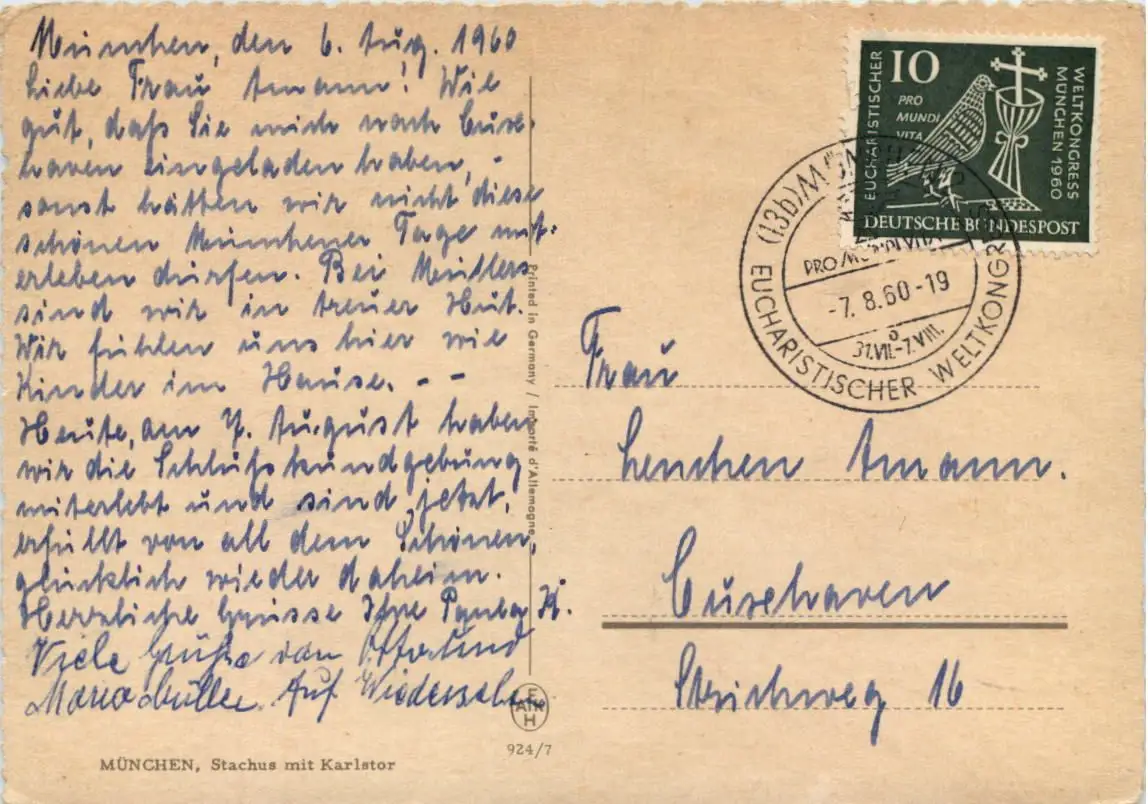 München, den 6. Aug. 1960
Liebe Frau Amann! Wie
gut, daß Sie mich nach Cux-
haven eingeladen haben, -
sonst hätten wir nicht diese
schönen Münchener Tage mit-
erleben dürfen. Bei Müllers
sind wir in treuer Hut.
Wir fühlen uns hier wie
Kinder im Hause. - -
Heute, am 7. August haben
wir die Schlußkundgebung
miterlebt und sind jetzt,
erfüllt von all dem Schönen,
glücklich wieder daheim.
Herzliche Grüsse Ihre K.
Viele Grüße von Otto und
Maria Müller. Auf Wiedersehen
MÜNCHEN, Stachus mit Karlstor
Printed in Germany / Importé d'Allemagne
AFKH
924/7
10
PRO
MUNDI
VITA
EUCHARISTISCHER
WELTKONGRESS
MÜNCHEN 1960
DEUTSCHE BUNDESPOST
(13b) MÜNCHEN
PRO MUNDI VITA
-7.8.60-19
31.VII.-7.VIII.
EUCHARISTISCHER WELTKONGRESS
Frau
Lenchen Amann.
Cuxhaven
Strichweg 16